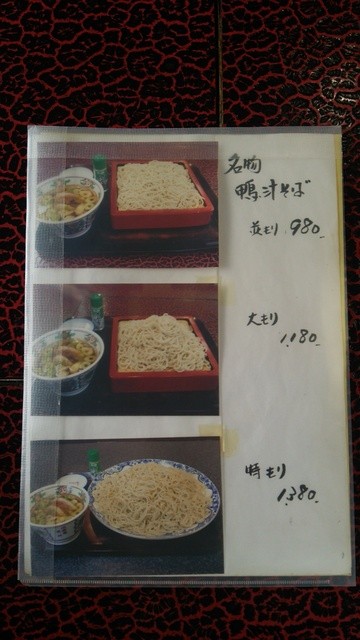 名物
鴨汁そば
並もり 980-
大もり
1,180-
特もり
1,380-